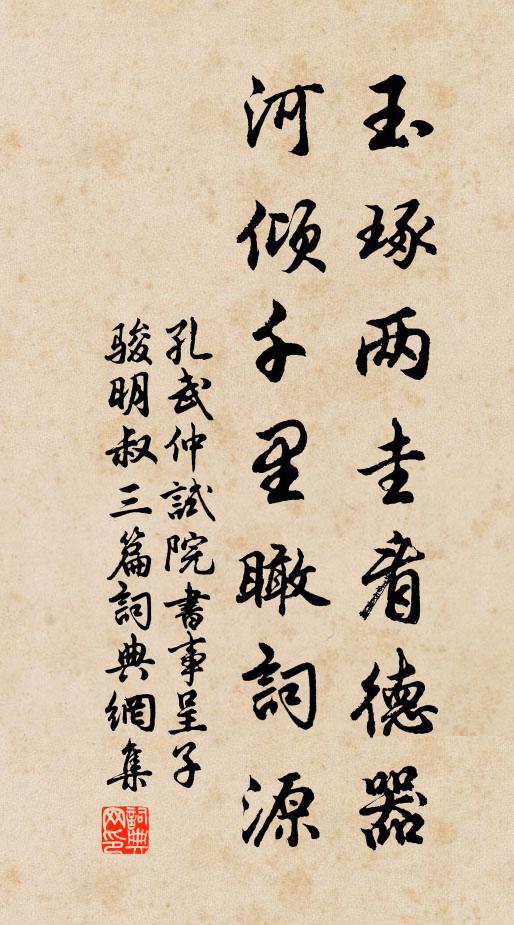 玉琢两圭看德器
河倾千里瞰詞源
孔武仲試院書事呈子
駿明叔三篇詞典網集
詞典网印